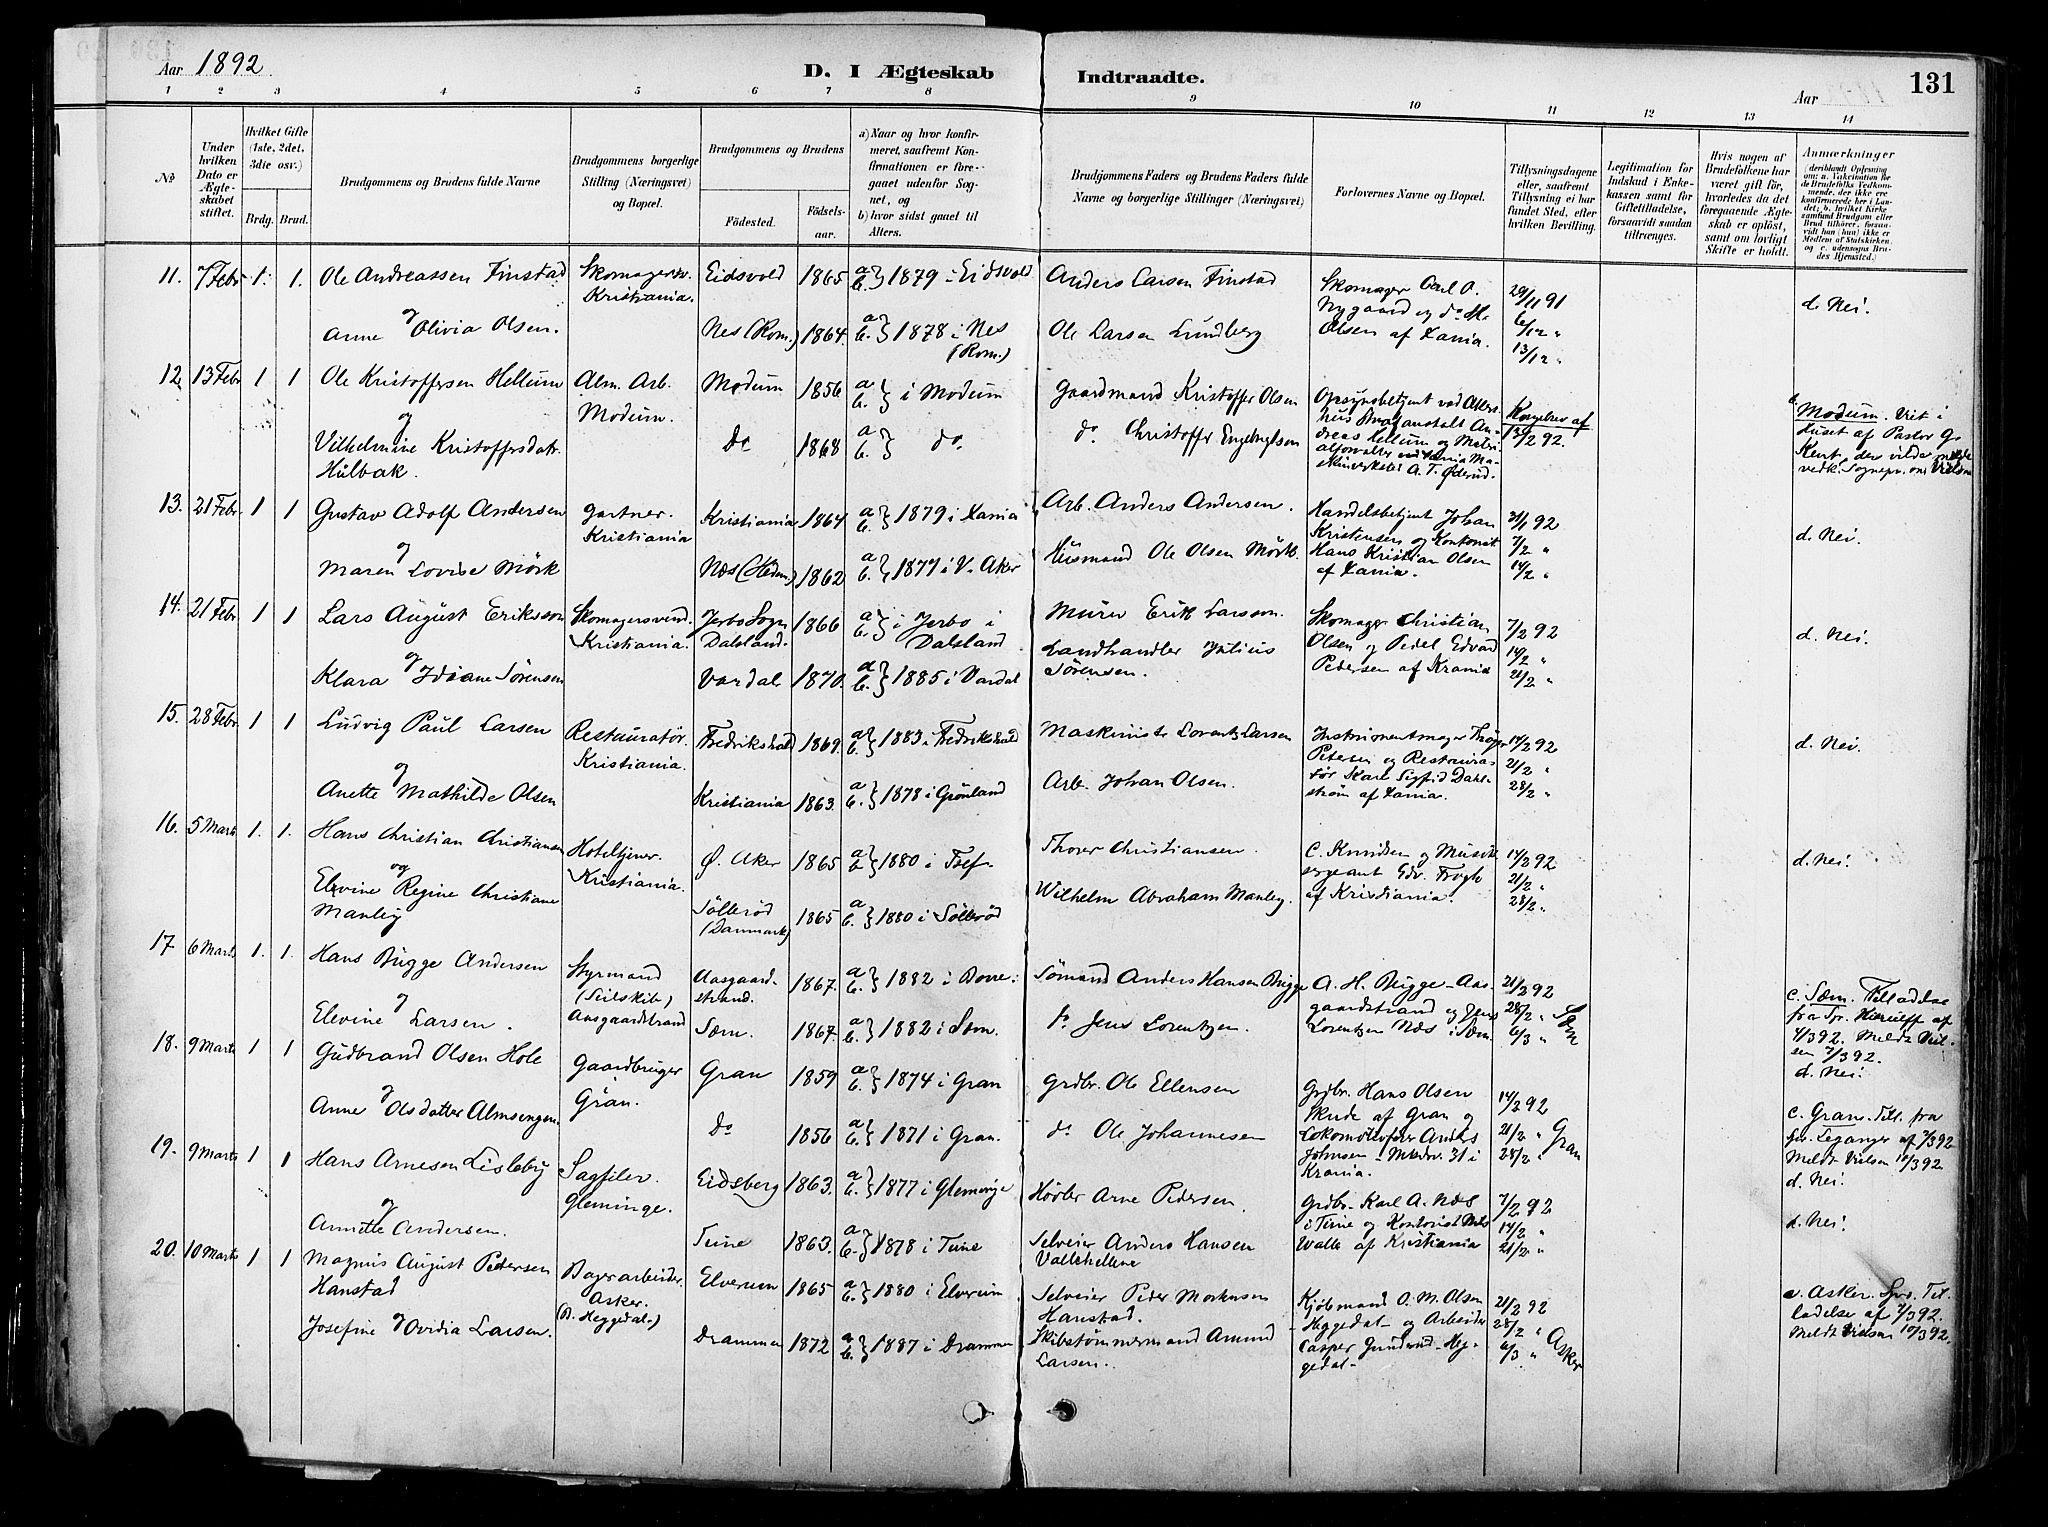 Aar 1892.
D. I Ægteskab Indtraadte.
131
Aar
1 2 3 4 5 6 7 8 9 10 11 12 13 14
№
Under hvilken Dato er Ægteskabet stiftet.
Hvilket Gifte (1ste, 2det, 3die osv.)
Brdg. Brud.
Brudgommens og Brudens fulde Navne
Brudgommens borgerlige Stilling (Næringsvei) og Bopæl.
Brudgommens og Brudens
Fødested. Fødselsaar.
a) Naar og hvor konfirmeret, saafremt Konfirmationen er foregaaet udenfor Sognet, og
b) hvor sidst gaaet til Alters.
Brudgommens Faders og Brudens Faders fulde Navne og borgerlige Stillinger (Næringsvei)
Forlovernes Navne og Bopæl.
Tillysningsdagene eller, saafremt Tillysning ei har fundet Sted, efter hvilken Bevilling.
Legitimation for Indskud i Enkekassen samt for Giftetilladelse, forsaavidt saadan tiltrænges.
Hvis nogen af Brudefolkene har været gift før, hvorledes da det foregaaende Ægteskab er opløst, samt om lovligt Skifte er holdt.
Anmærkninger
(deriblandt Oplysning om: a. Vakcination for de Brudefolks Vedkommende, der ikke ere konfirmerede her i Landet; b. hvilket Kirkesamfund Brudgom eller Brud tilhører, forsaavidt han (hun) ikke er Medlem af Statskirken, og c. udensogns Brudes Hjemsted.)
11. 7 Febr 1. 1. Ole Andreassen Finstad Skomagersv. Kristiania. Eidsvold 1865 a b } 1879 i Eidsvold Anders Larsen Finstad Skomager Carl O. Nygaard og do M. Olsen af Xania. 29/11 91 6/12 " 13/12 " d. Nei.
og
Anne Olivia Olsen. Nes (Rom.) 1864. a b. } 1878 i Nes (Rom.) Ole Larsen Lundberg
12. 13 Febr 1 1 Ole Kristoffersen Hellum Alm. Arb. Modum. Modum 1856 a b. } i Modum Gaardmand Kristoffer Olsen Opsynsbetjent ved Akershus Strafanstalt Andreas Hellum og Materialforvalter ved Xania Ma- A. T. Øderud. Kongebrev af 13/2 92.
c. Modum. Viet i Huset af Pastor G. Kent, der vilde melde vedk. Sognepr. om Vielsen
og
Vilhelmine Kristoffersdatr. Hulbak. Do 1868 a b. } do. do Christoffr Engebretsen
13. 21 Febr. 1 1 Gustav Adolf Andersen Gartner. Kristiania Kristiania 1864 a b. } 1879 i Xania Arb. Anders Andersen. Handelsbetjent Johan Kristensen og Kontorist Hans Kristian Olsen af Xania. 31/1 92 7/2 " 14/2 " d. Nei.
og
Maren Lovise Mörk Næs (Hedm.) 1862 a b. } 1877 i V. Aker Husmand Ole Olsen Mörk.
14. 21 Febr 1 1 Lars August Eriksson Skomagersvend. Kristiania. Jerbo Sogn Dalsland. 1866 a b. } i Jerbo i Dalsland Murer Erik Larsson. Skomager Christian Olsen og Pedel Edvard Pedersen af Krania 7/2 92 14/2 " 21/2 " d. Nei.
og
Klara Idiane Sørensen Vardal 1870. a b. } 1885 i Vardal Landhandler Julius Sørensen.
15. 28 Febr. 1 1 Ludvig Paul Larsen Restauratør. Kristiania. Fredrikshald 1869. a b. } 1883 i Fredrikshald Maskinist Lorentz Larsen Instrumentmager Petersen og Restauratør Karl Sigfid Dahlström af Xania. 14/2 92 21/2 " 28/2 " d. Nei.
og
Anette Mathilde Olsen Kristiania 1863. a b. } 1878 i Grønland Arb. Johan Olsen.
16. 5 Marts 1. 1. Hans Christian Christiansen Hoteltjener. Kristiania. Ø. Aker 1865 a b } 1880 i Thorer Christiansen. C. Knudsen og Musiksergeant Edv. af Kristiania. 14/2 92 21/2 " 28/2 " d. Nei.
og
Elevine Regine Christiane Manley Søllerød (Danmark) 1865 a b. } 1880 i Søllerød Wilhelm Abraham Manley.
17 6 Marts 1. 1. Hans Bugge Andersen Styrmand (Seilskib) Aasgaardstrand Aasgaardstrand. 1867. a b. } 1882 i Borre. Sømand Anders Hansen Bugge A. H. Bugge - Aasgaardstrand og Jens Lorentzen Næs i Sæm. 21/2 92 28/2 " 6/3 " Sæm
c. Sæm. Tilladelse fra Spr. af 4/3 92. Meldt Vielsen 7/3 92. d. Nei.
og
Elevine Larsen. Sæm. 1867. a b. } 1882 i Sæm. Jens Lorentzen.
18. 9 Marts 1 1 Gudbrand Olsen Hole Gaardbruger Gran. Gran 1859 a b. } 1874 i Gran Grdbr. Ole Ellensen Grdbr. Hans Olsen Skude af Gran og Lokomotivfører Anders Johnsen - 31 i Krania. 14/2 92 21/2 " 28/2 " Gran
c. Gran. Till. fra Leganger af 7/3 92 Meldt Vielsen 10/3 92. d. Nei.
og
Anne Olsdatter Almsengen Do 1856 a b. } 1871 i Gran. do Ole Johannesen
19. 9 Marts 1 1 Hans Arnesen Lisleby Sagfiler. Gleminge. Eidsberg 1863. a b. } 1877 i Gleminge Arne Pedersen. Grdbr. Karl A. Næs i Tune og Kontorist Walle af Kristiania 7/2 92 14/2 " 21/2 " d. Nei.
og
Annette Andersen. Tune 1863. a b. } 1878 i Tune Selveier Anders Hansen Vallehellene
20. 10 Marts 1 1 Magnus August Pedersen Hanstad Asker. (B. Heggedal) Elverum 1865 a b. } 1880 i Elverum Selveier Peder Hanstad. Kjøbmand O. M. Olsen - Heggedal - og Arbeider Casper - Heggedal - 21/2 92 28/2 " 6/3 " Asker
c. Asker. Spr. Tilladelse af 7/3 92. Meldt Vielsen 10/3 92.
og
Josefine Ovidia Larsen. Drammen 1872 a b. } 1887 i Drammen Skibstømmermand Amund Larsen.